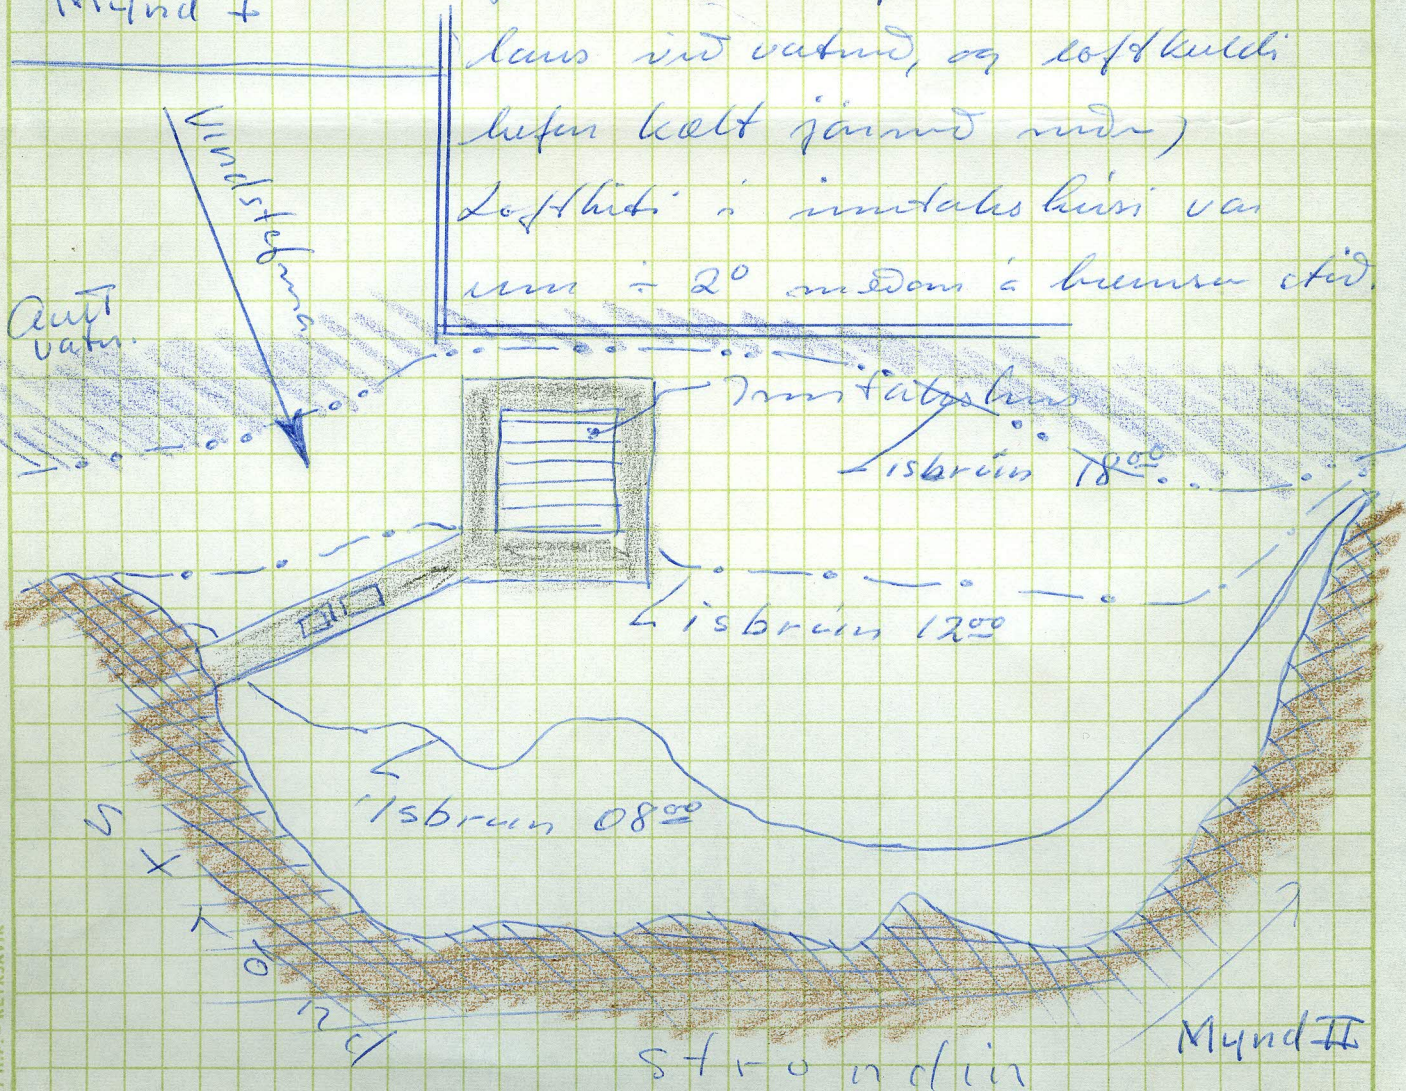 Mynd I
laus við vatnið, og loftkuldi
hefur kælt járnið niður,
Lofthiti í inntakshúsi var
um ÷ 2° meðan á bremsu stóð.
Vindstefna
Autt
vatn.
Inntakshús
ísbrún 18⁰⁰
ísbrún 12⁰⁰
Ísbrún 08⁰⁰
Ströndin
Ströndin
Mynd II